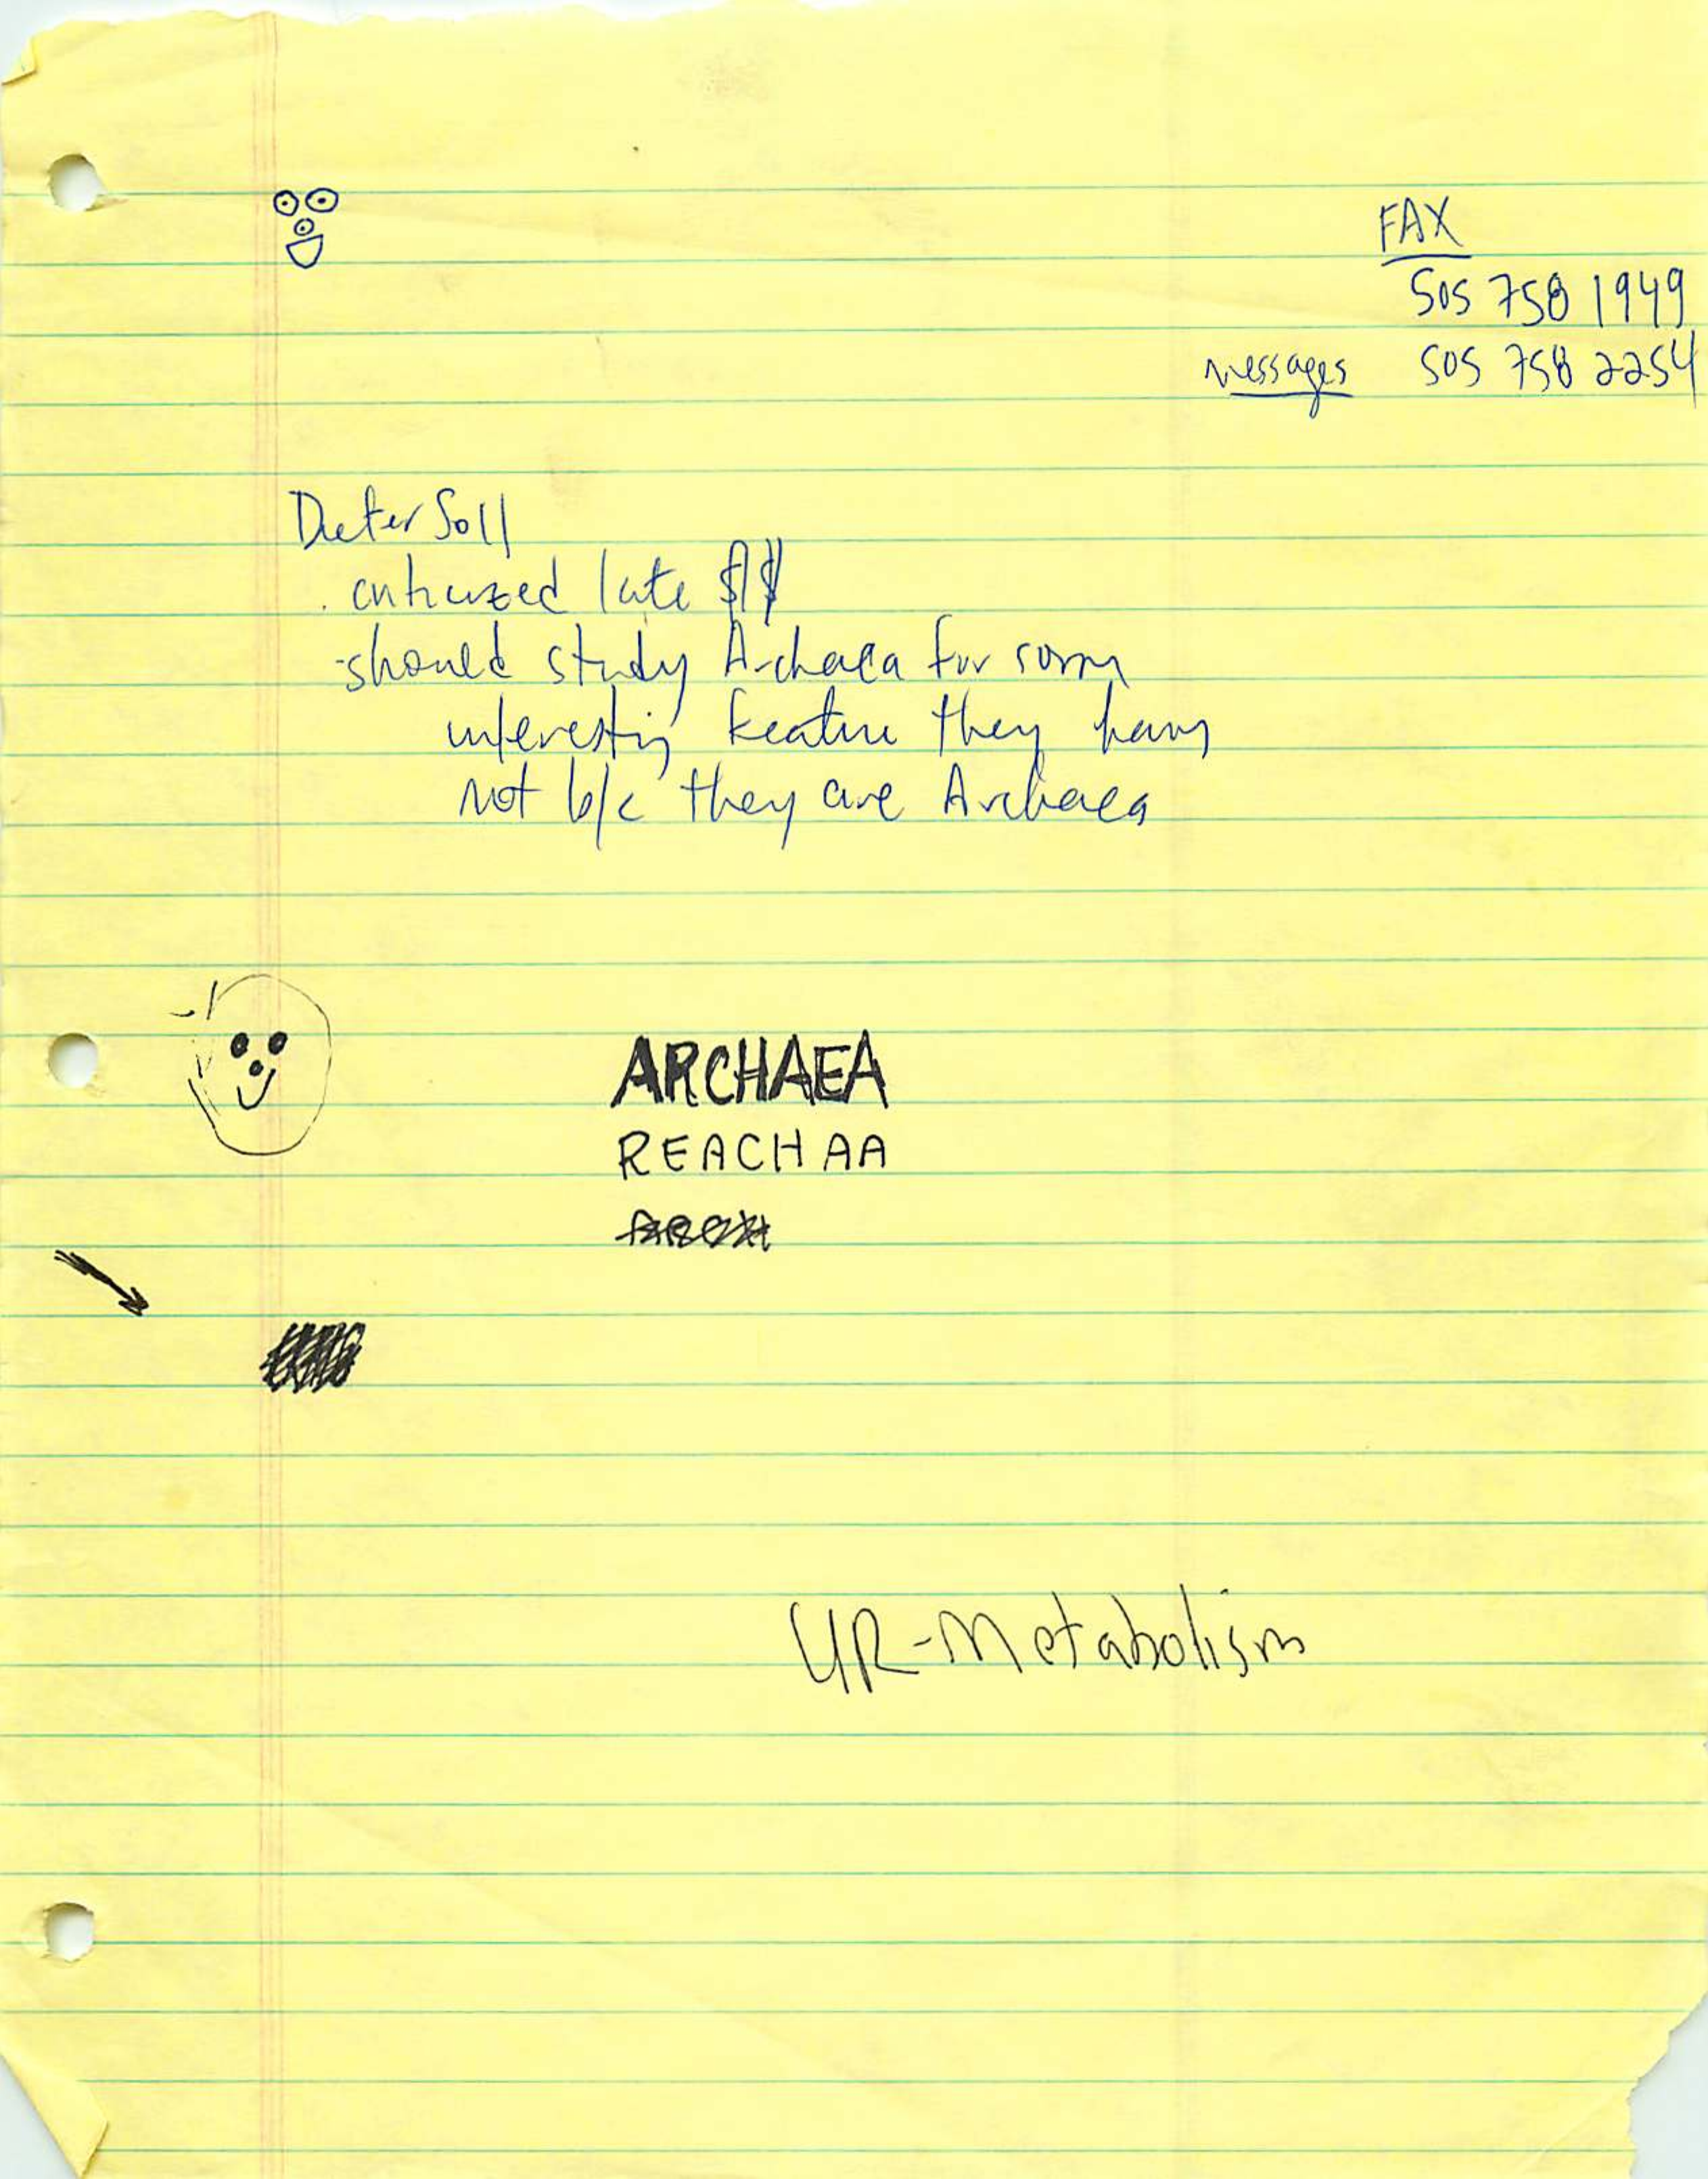 FAX
505 758 1949
messages 505 758 2254
Dieter Soll
late $$
- should study Archaea for some
interesting feature they have
not b/c they are Archaea
ARCHAEA
REACHAA
UR-Metabolism